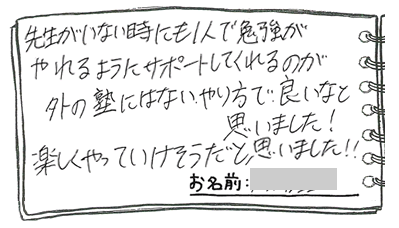 先生がいない時にも1人で勉強が
やれるようにサポートしてくれるのが
外の塾にはないやり方で良いなと
思いました!
楽しくやっていけそうだと思いました!!
お名前: